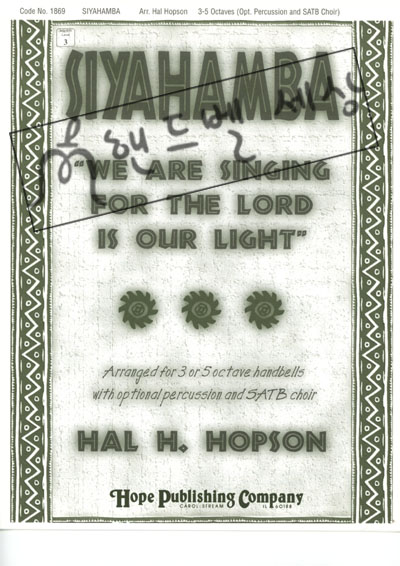 Code No. 1869 SIYAHAMBA Arr. Hal Hopson 3-5 Octaves (Opt. Percussion and SATB Choir)
3
SIYAHAMBA
핸드벨 세상
“WE ARE SINGING
FOR THE LORD
IS OUR LIGHT”
Arranged for 3 or 5 octave handbells
with optional percussion and SATB choir
HAL H. HOPSON
Hope Publishing Company
CAROL STREAM IL 60188